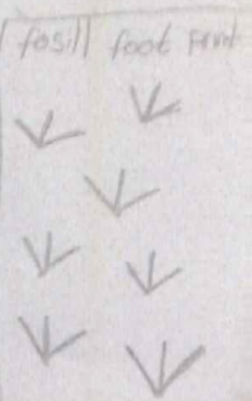 fosill foot Print